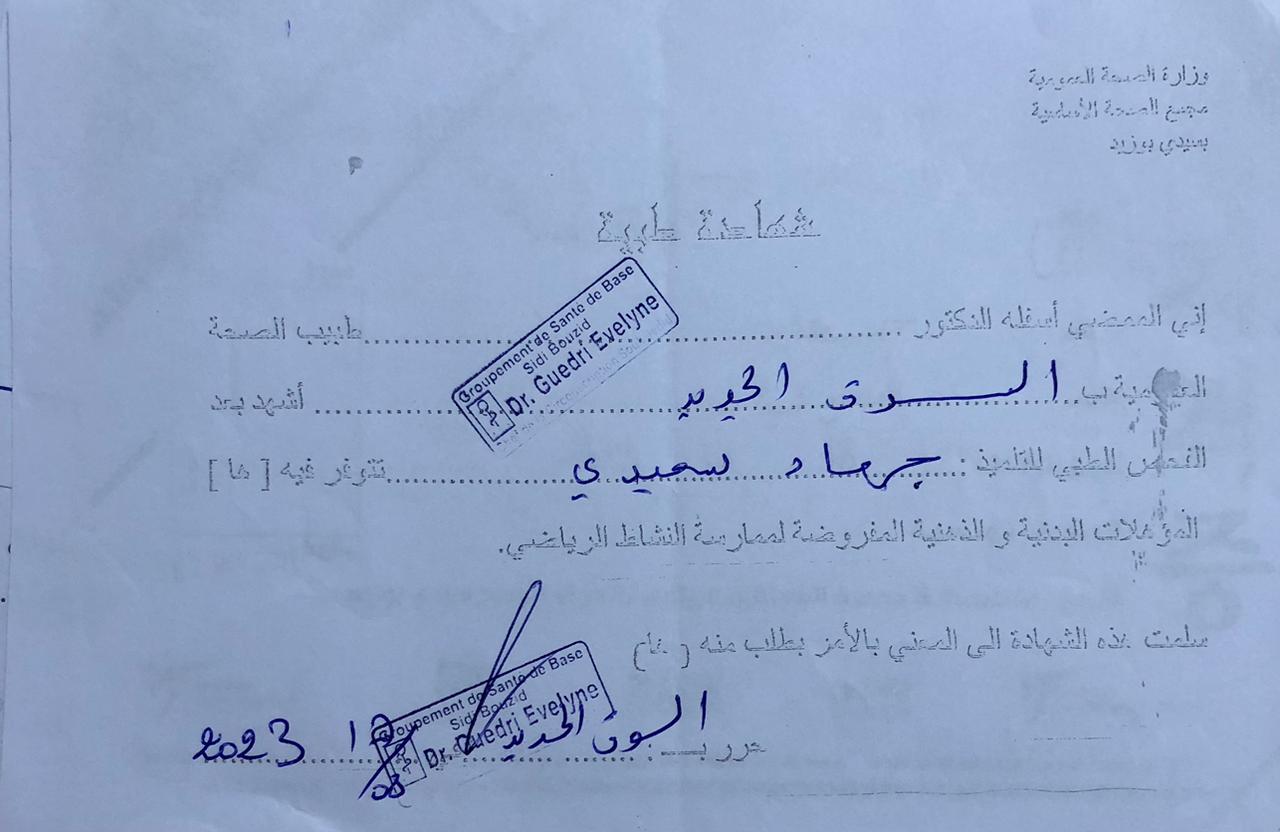 وزارة الصحة العمومية
مجمع الصحة الأساسية
بسيدي بوزيد
شهادة طبية
إني الممضي أسفله الدكتور ........ طبيب الصحة
Groupement de Santé de Base
Sidi Bouzid
Dr. Guedri Evelyne
العمومية ب السوق الجديد ........ أشهد بعد
الفحص الطبي للتلميذ : جهاد سعيدي ........ تتوفر فيه [ ها ]
المؤهلات البدنية و الذهنية المفروضة لممارسة النشاط الرياضي.
سلمت هذه الشهادة الى المعني بالأمر بطلب منه ( ها )
حرر بـ السوق الجديد 2023
Groupement de Santé de Base
Sidi Bouzid
Dr. Guedri Evelyne